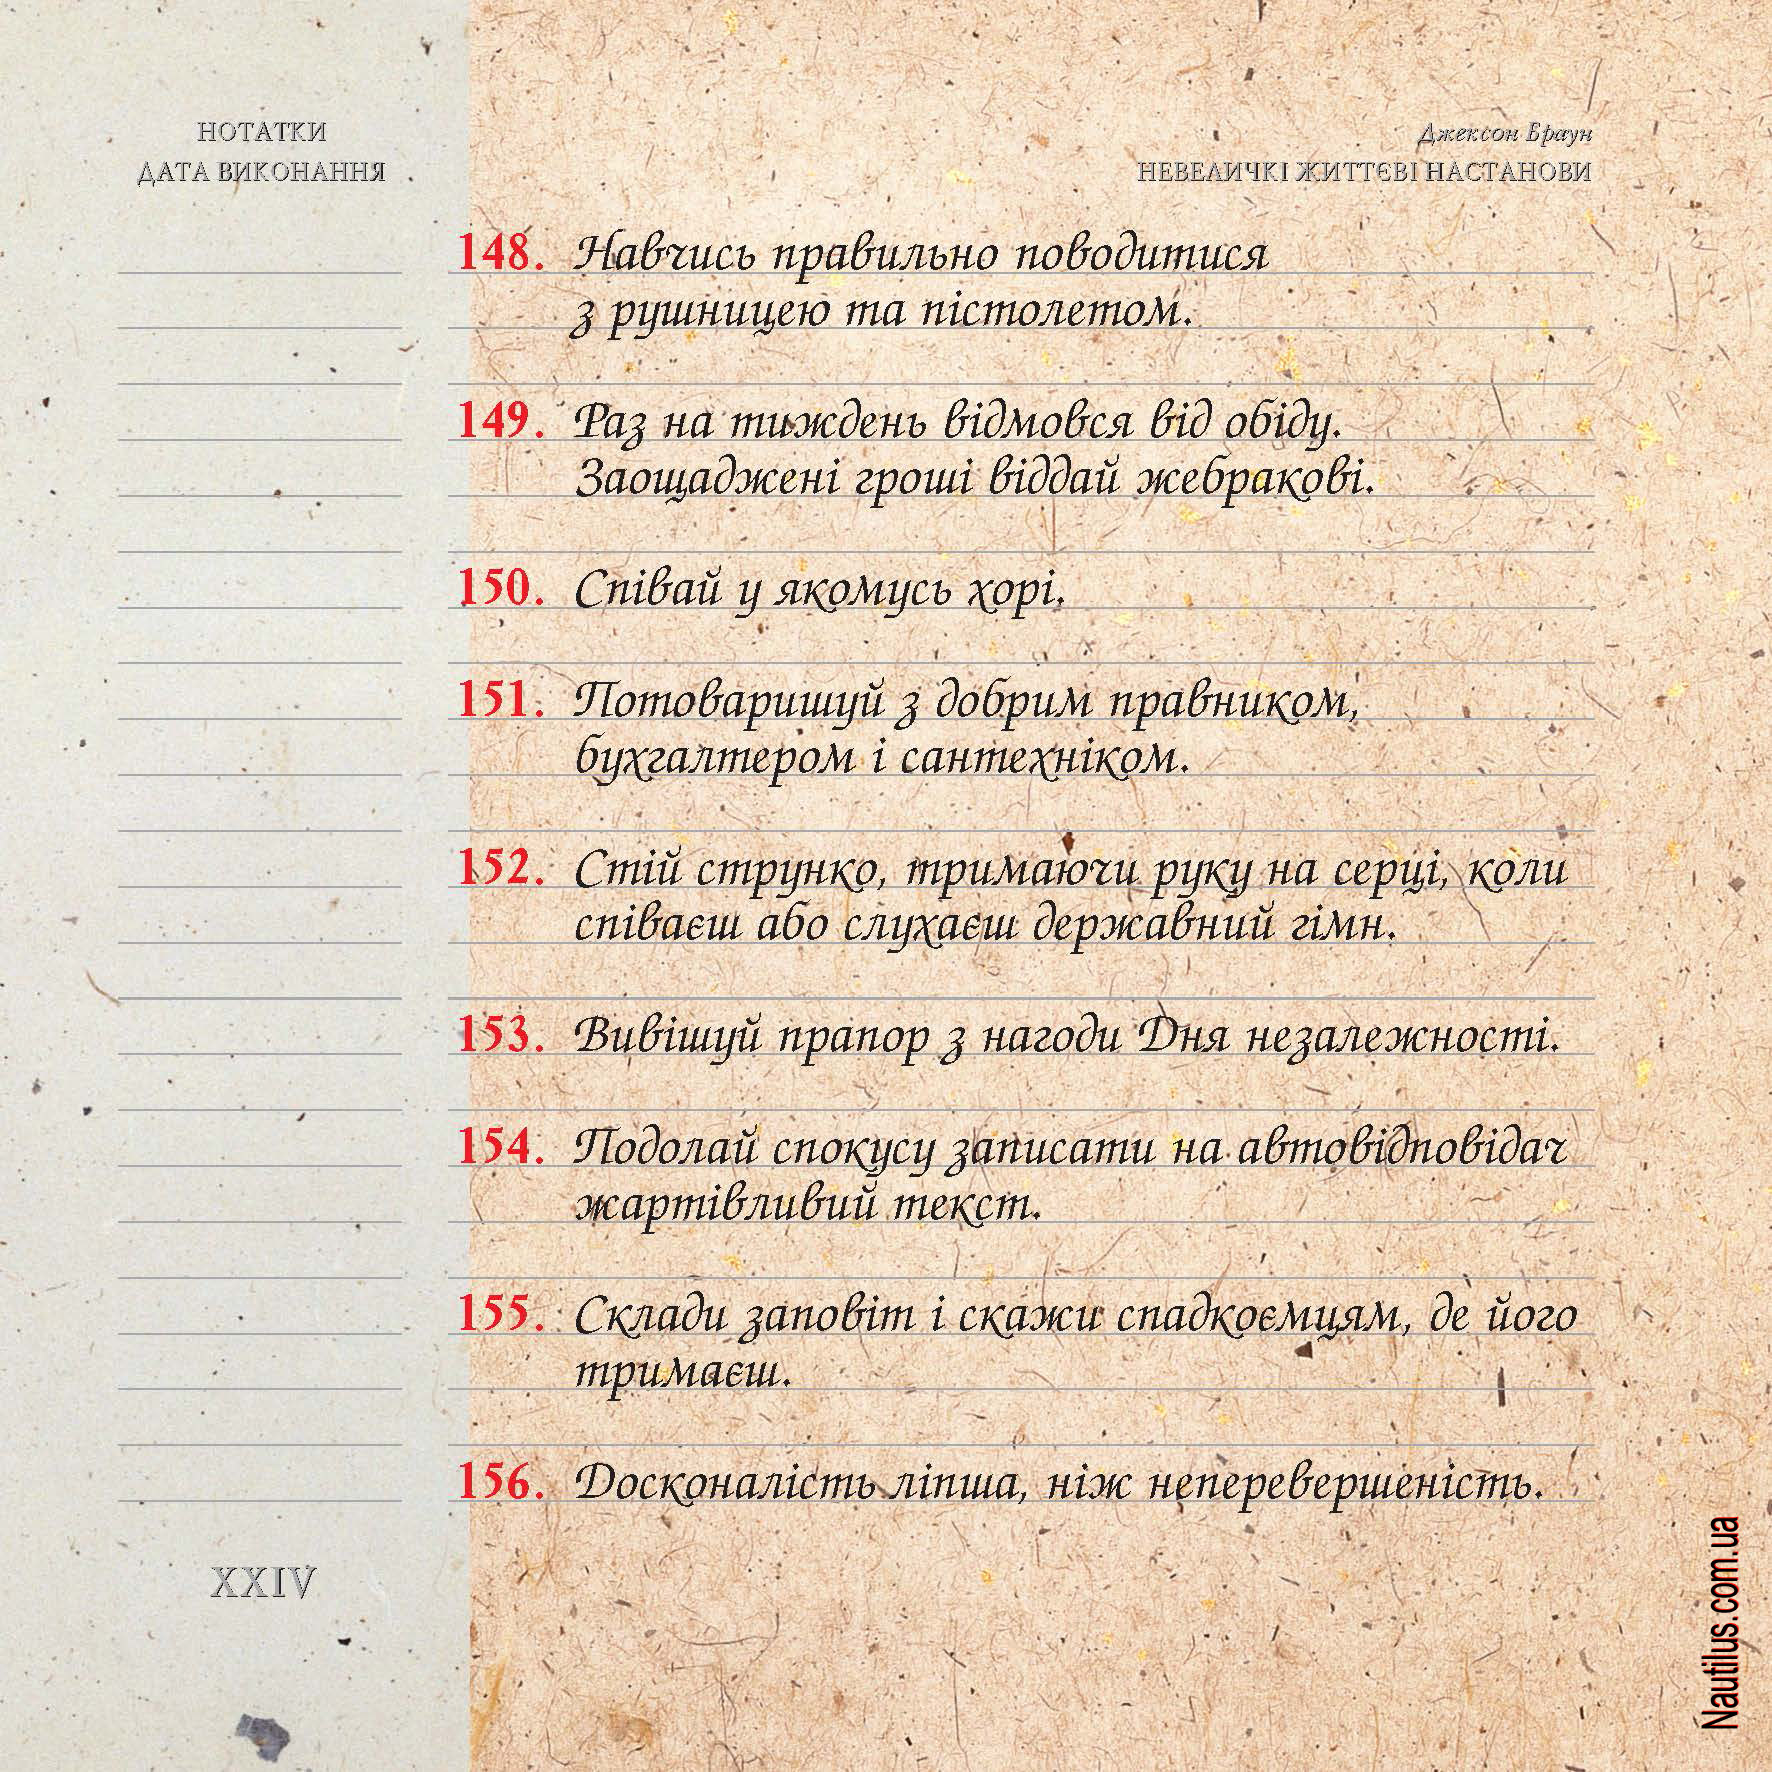 НОТАТКИ
ДАТА ВИКОНАННЯ
Джексон Браун
НЕВЕЛИЧКІ ЖИТТЄВІ НАСТАНОВИ
148. Навчись правильно поводитися
з рушницею та пістолетом.
149. Раз на тиждень відмовся від обіду.
Заощаджені гроші віддай жебракові.
150. Співай у якомусь хорі.
151. Потоваришуй з добрим правником,
бухгалтером і сантехніком.
152. Стій струнко, тримаючи руку на серці, коли
співаєш або слухаєш державний гімн.
153. Вивішуй прапор з нагоди Дня незалежності.
154. Подолай спокусу записати на автовідповідач
жартівливий текст.
155. Склади заповіт і скажи спадкоємцям, де його
тримаєш.
156. Досконалість ліпша, ніж неперевершеність.
XXIV
Nautilus.com.ua